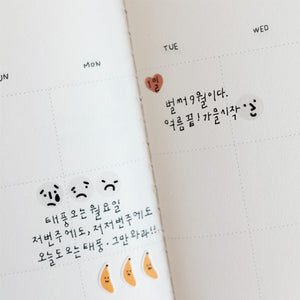 UN
MON
TUE
WED
1일
벌써 9월이다.
여름 끝! 가을시작
태풍오는 월요일
저번주에도, 저저번주에도
오늘도 오는 태풍. 그만와라!!